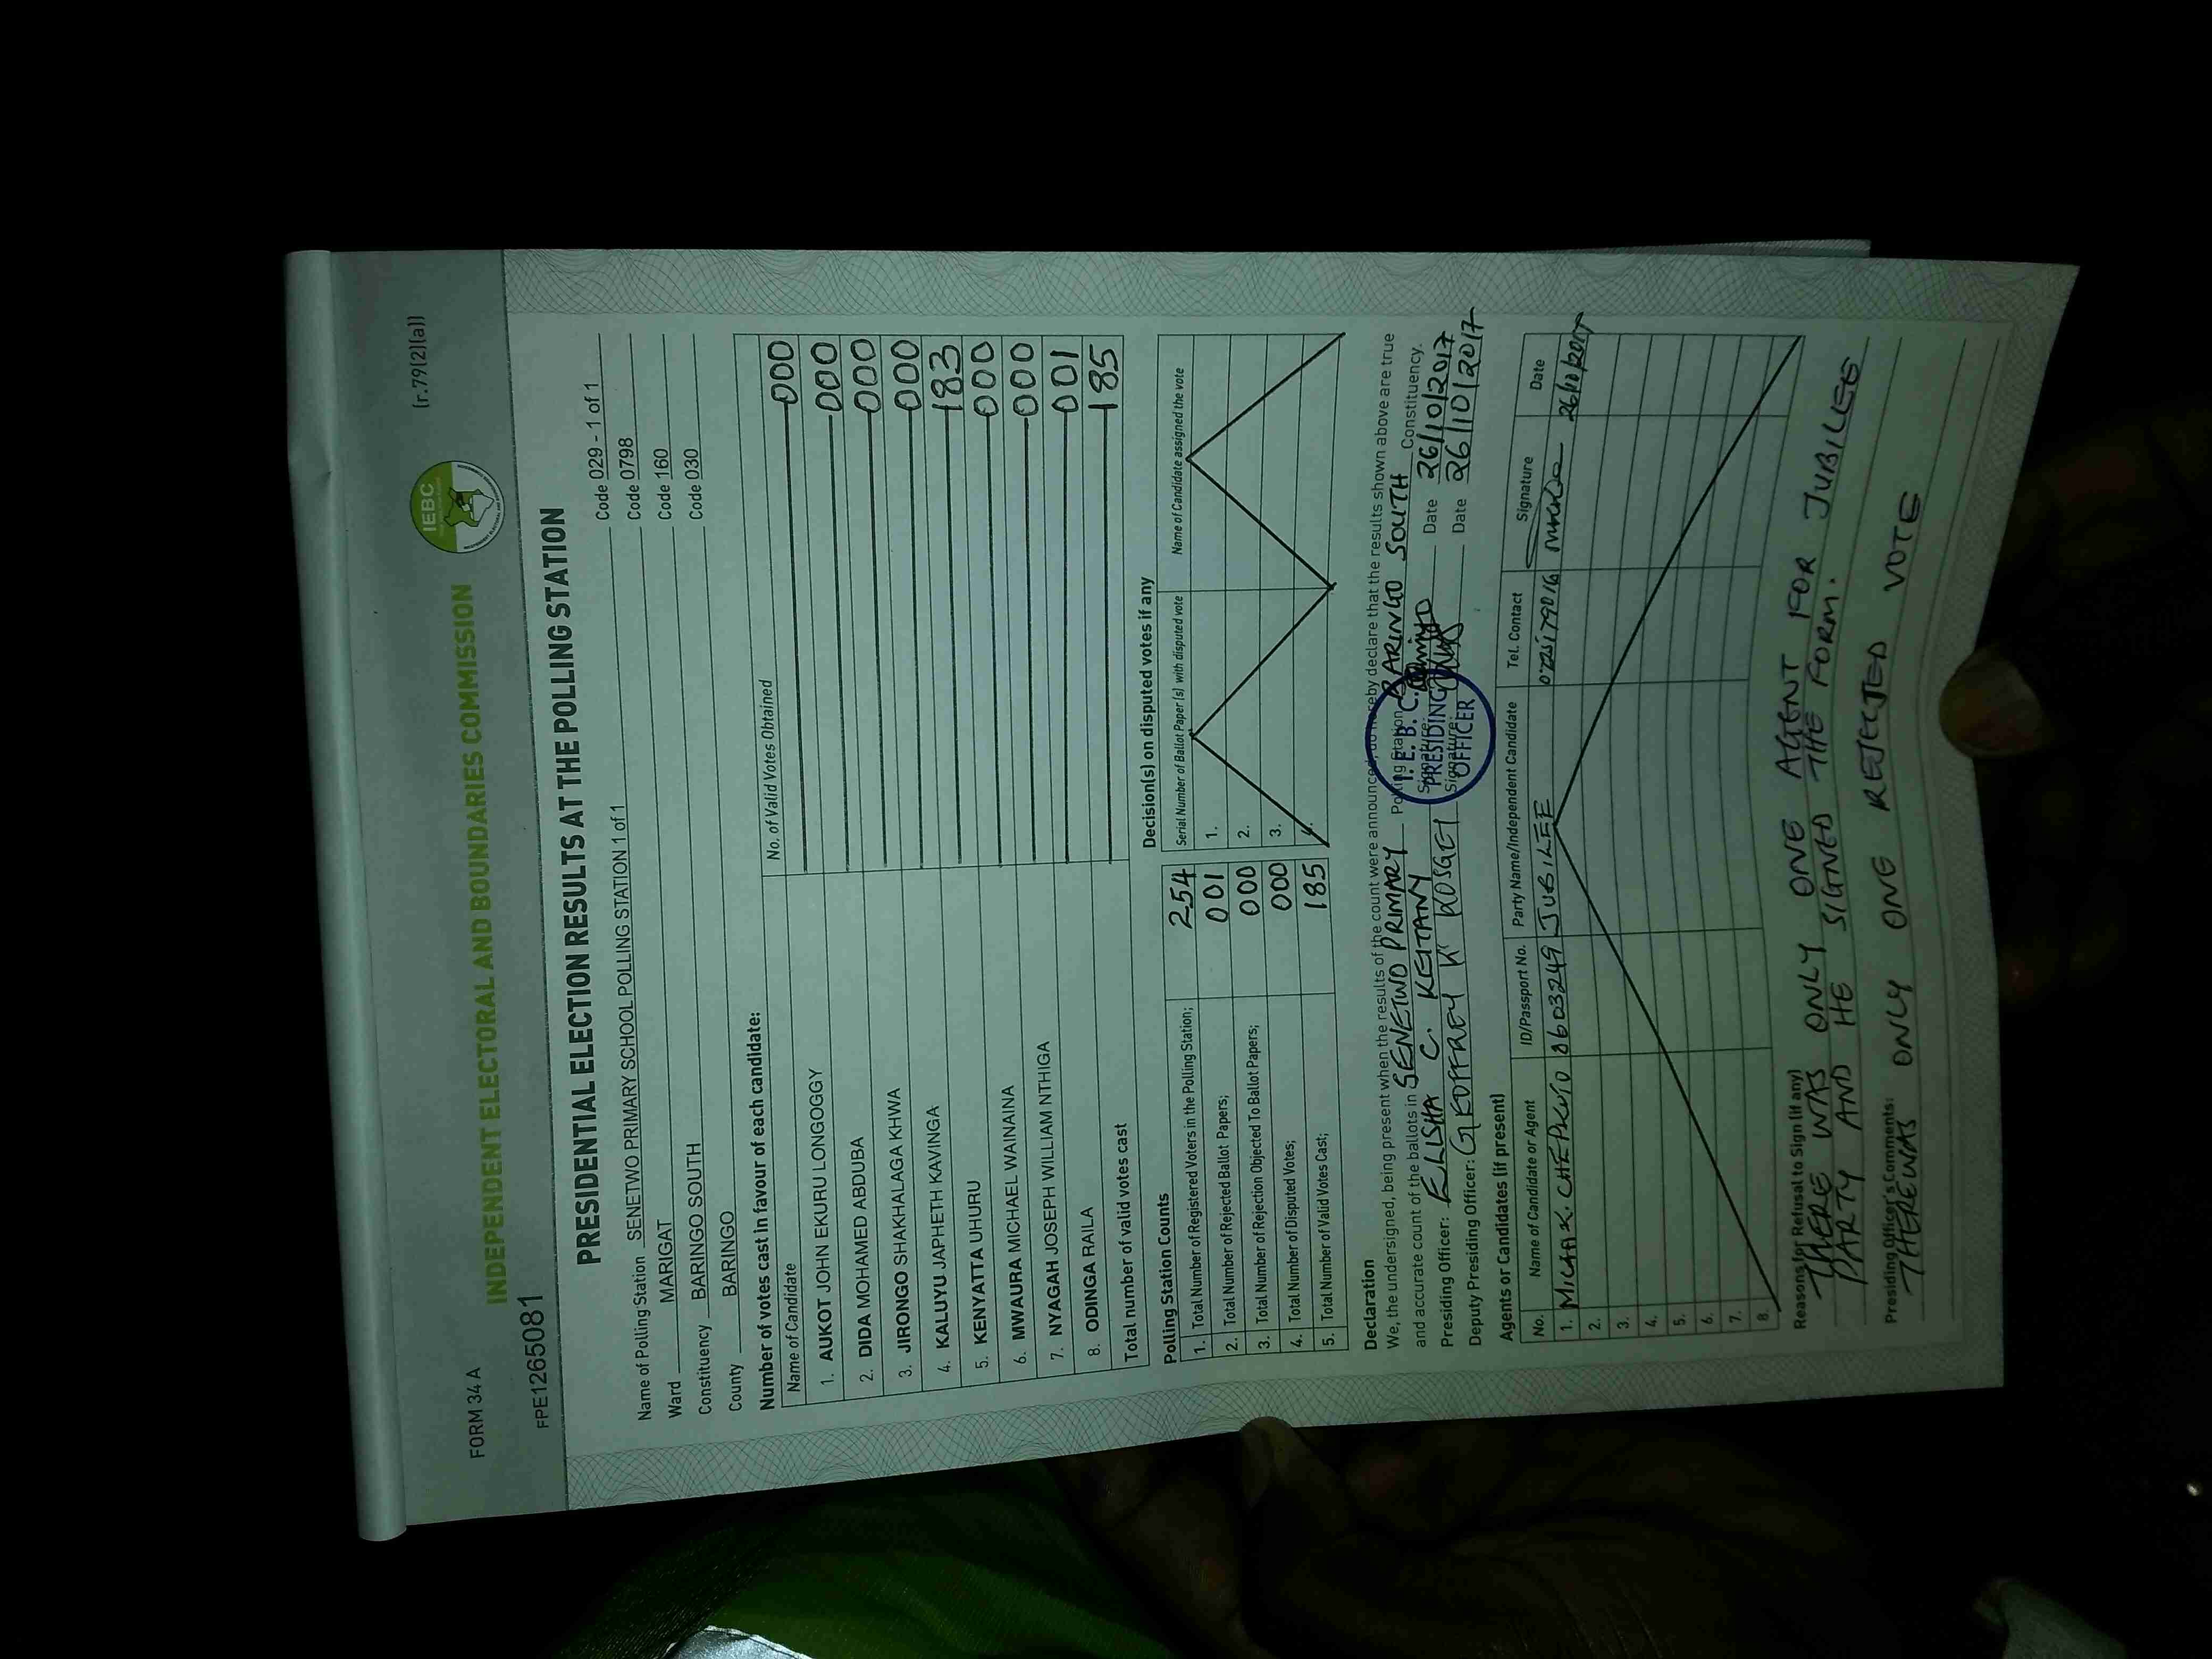 FORM 34 A
(r.79(2)(a))
IEBC
INDEPENDENT ELECTORAL AND BOUNDARIES COMMISSION
FPE1265081
PRESIDENTIAL ELECTION RESULTS AT THE POLLING STATION
Name of Polling Station SENETWO PRIMARY SCHOOL POLLING STATION 1 of 1 Code 029 - 1 of 1
Ward MARIGAT Code 0798
Constituency BARINGO SOUTH Code 160
County BARINGO Code 030
Number of votes cast in favour of each candidate:
Name of Candidate No. of Valid Votes Obtained
1. AUKOT JOHN EKURU LONGOGGY 000
2. DIDA MOHAMED ABDUBA 000
3. JIRONGO SHAKHALAGA KHWA 000
4. KALUYU JAPHETH KAVINGA 000
5. KENYATTA UHURU 183
6. MWAURA MICHAEL WAINAINA 000
7. NYAGAH JOSEPH WILLIAM NTHIGA 000
8. ODINGA RAILA 001
Total number of valid votes cast 185
Polling Station Counts
1. Total Number of Registered Voters in the Polling Station; 254
2. Total Number of Rejected Ballot Papers; 001
3. Total Number of Rejection Objected To Ballot Papers; 000
4. Total Number of Disputed Votes; 000
5. Total Number of Valid Votes Cast; 185
Decision(s) on disputed votes if any
Serial Number of Ballot Paper (s) with disputed vote Name of Candidate assigned the vote
1.
2.
3.
4.
Declaration
We, the undersigned, being present when the results of the count were announced, do hereby declare that the results shown above are true
and accurate count of the ballots in SENETWO PRIMARY Polling Station BARINGO SOUTH Constituency.
Presiding Officer: ELISHA C. KEITANY Signature: Date 26/10/2017
Deputy Presiding Officer: GEOFFREY K KOSGEI Signature: Date 26/10/2017
I. E. B. C.
PRESIDING
OFFICER
Agents or Candidates (if present)
No. Name of Candidate or Agent ID/Passport No. Party Name/Independent Candidate Tel. Contact Signature Date
1. 0603249 JUBILEE 26/10/2017
2.
3.
4.
5.
6.
7.
8.
Reasons for Refusal to Sign (if any)
THERE WAS ONLY ONE AGENT FOR JUBILEE
PARTY AND HE SIGNED THE FORM.
Presiding Officer's Comments:
THERE WAS ONLY ONE REJECTED VOTE